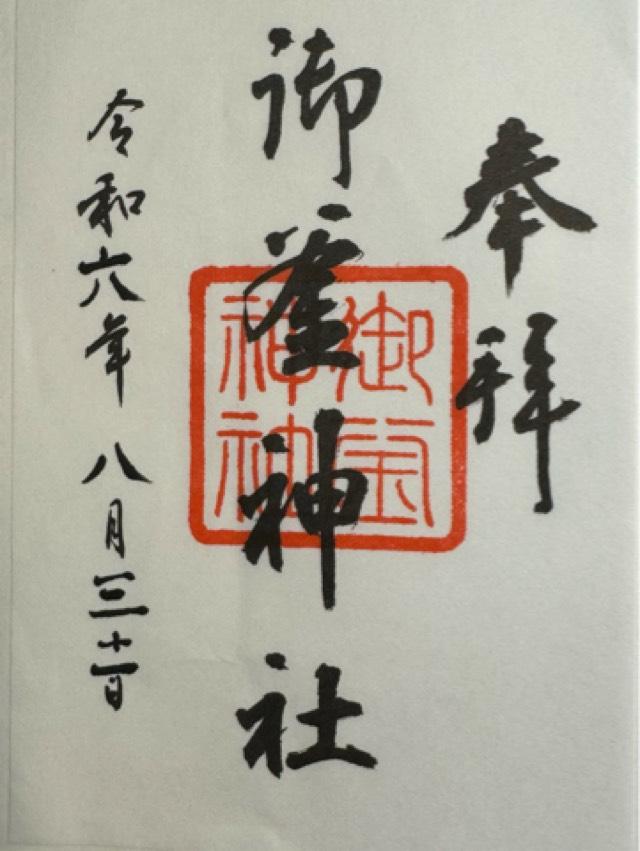 奉拝
御釜神社
御釜神社
令和六年八月三十一日